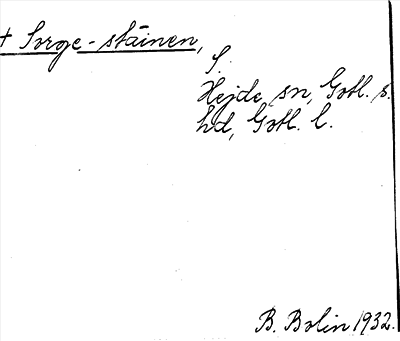 † Sorge-stäinen,
S.
Hejde sn, Gotl. s.
hd, Gotl. l.
B. Bolin 1932.